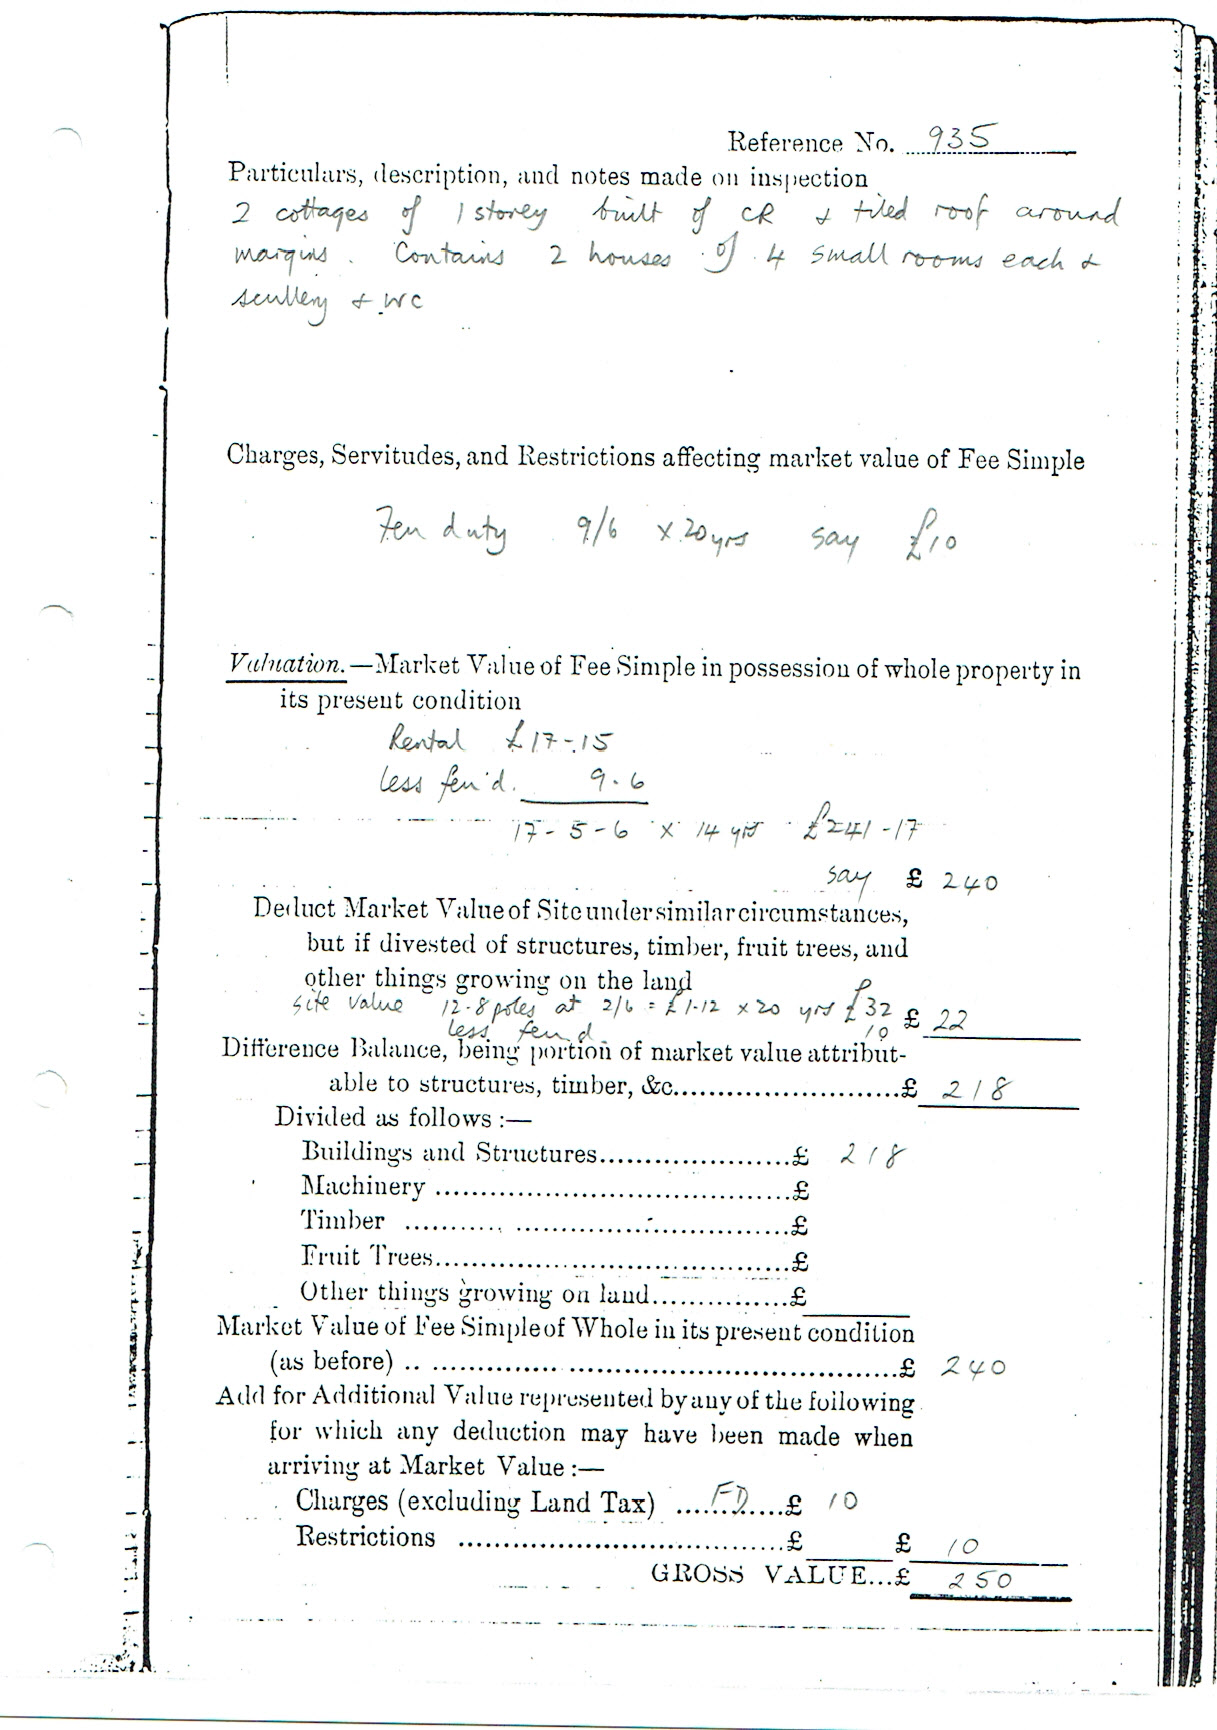 Reference No. 935
Particulars, description, and notes made on inspection
2 cottages of 1 storey built of CR & tiled roof around
margins. Contains 2 houses of 4 small rooms each &
scullery & WC
Charges, Servitudes, and Restrictions affecting market value of Fee Simple
Feu duty 9/6 x 20 yrs say £10
Valuation.—Market Value of Fee Simple in possession of whole property in
its present condition
Rental £17-15
less feu'd. 9-6
17-5-6 x 14 yrs £241-17
say £ 240
Deduct Market Value of Site under similar circumstances,
but if divested of structures, timber, fruit trees, and
other things growing on the land
site value 12.8 poles at 2/6 = £1-12 x 20 yrs £32 £ 22
less feu d. 10
Difference Balance, being portion of market value attribut-
able to structures, timber, &c. £ 218
Divided as follows :—
Buildings and Structures £ 218
Machinery £
Timber £
Fruit Trees £
Other things growing on land £
Market Value of Fee Simple of Whole in its present condition
(as before) £ 240
Add for Additional Value represented by any of the following
for which any deduction may have been made when
arriving at Market Value :—
Charges (excluding Land Tax) FD £ 10
Restrictions £ £ 10
GROSS VALUE...£ 250